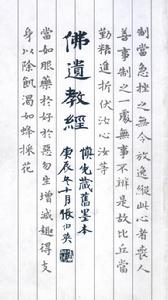 制當急挫之無令放逸縱此心者喪人
善事制之一處無事不辨是故比丘當
勤精進折伏汝心汝等
慎先藏舊墨本
佛遺教經
庚辰年十月張伯英
當如服藥於好於惡勿生增減趣得支
身以除飢渴如蜂採花